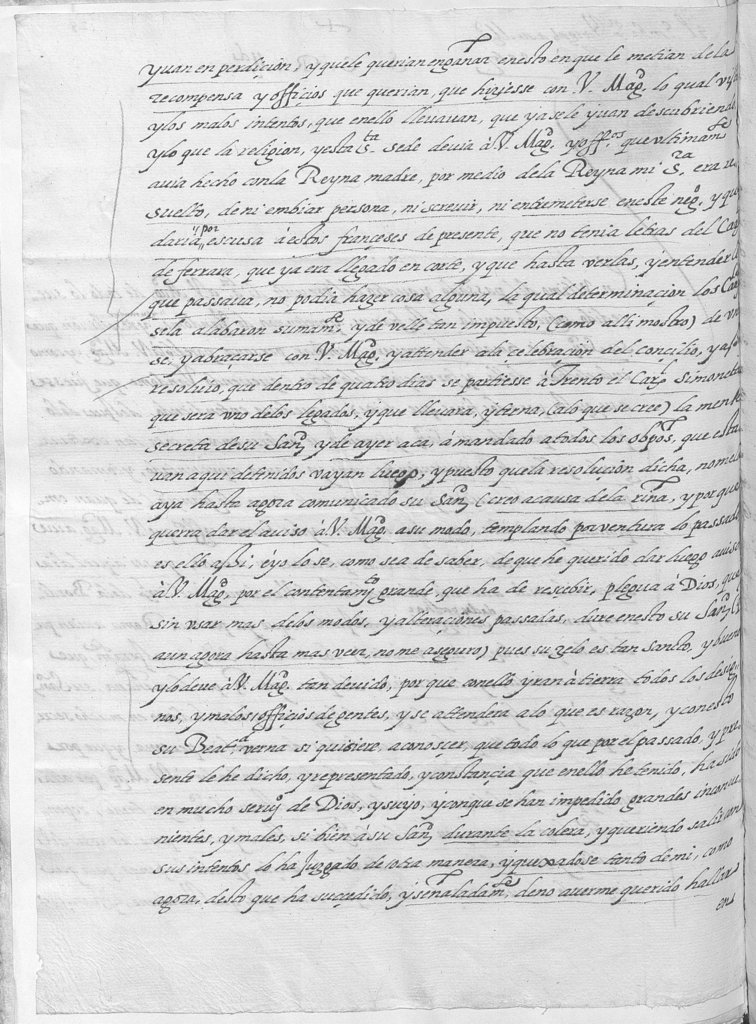 yuan en perdiçion, y que le querian engañar en esto en que le metian de la
recompensa y officios que querian, que hiziesse con V. Mag.d lo qual
y los malos intentos, que en ello lleuauan, que ya se le yuan descubriend
y lo que la religion, y esta s.ta sede deuia à V. Mag.d y off.os que vltimam.te
auia hecho con la Reyna madre, por medio de la Reyna mi S.ra, era re
suelto, de ni embiar persona, ni screuir, ni entremeterse en este neg.o, y que
daria por escusa à estos franceses de presente, que no tenia letras del Car.l
de ferrara, que ya era llegado en corte, y que hasta verlas, y entender lo
que passaua, no podia hazer cosa alguna, la qual determinacion los Car.les
se la alabaron sumam.te y de velle tan impuesto, (como alli mostro) de vnir
se y abraçarse con V. Mag.d y attender a la celebracion del concilio, y assi
resoluio, que dentro de quatro dias se partiesse à Trento el Car.l Simoneta
que sera vno de los legados, y que lleuara, y terna, (a lo que se cree) la mente
secreta de su San.d y de ayer aca, à mandado a todos los obpos, que esta
uan aqui detenidos vayan luego, y puesto que la resolucion dicha, no me la
aya hasta agora comunicado su San.d (creo a causa de la riña, y por que
querra dar el auiso à V. Mag.d a su modo, templando por ventura lo passado
es ello assi, è yo lo se, como sea de saber, de que he querido dar luego auiso
à V. Mag.d por el contentam.to grande, que ha de rescebir, plegua à Dios, que
sin vsar mas de los modos, y alteraciones passadas, dure en esto su San.d (q
aun agora hasta mas veer, no me aseguro) pues su zelo es tan sancto, y bueno
y lo deue à V. Mag.d tan deuido, por que con ello yran à tierra todos los desig
nos, y malos officios de gentes, y se attendera a lo que es razon, y con esto
su Beat.d verna si quisiere, a conosçer, que todo lo que por el passado, y pre
sente le he dicho, y representado, y constançia que en ello he tenido, ha sido
en mucho serui.o de Dios, y suyo, y con que se han impedido grandes inconue
nientes, y males, si bien à su San.d durante la colera, y queriendo salir con
sus intentos lo ha juzgado de otra manera, y quexadose tanto de mi, como
agora, desto que ha sucedido, y señaladam.te de no auerme querido hallar
en